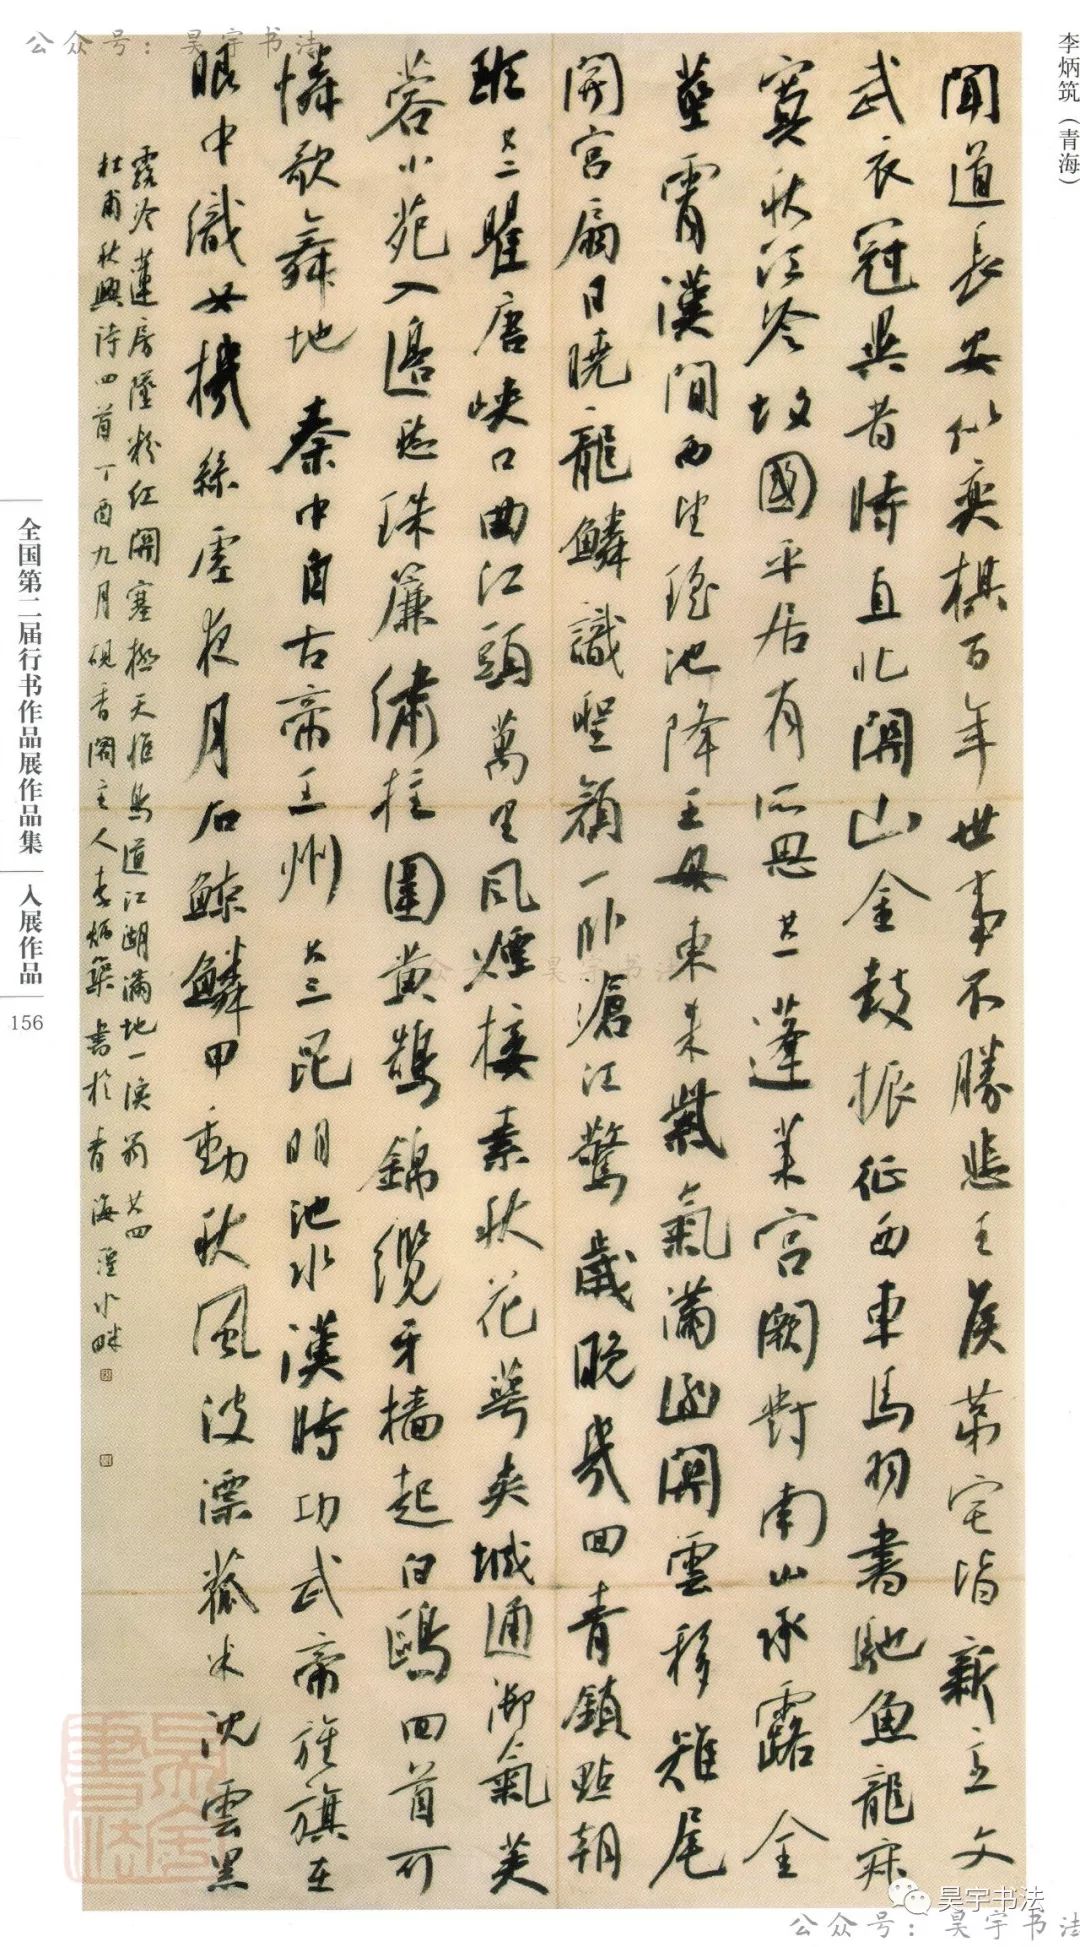 公众号：昊宇书法
李炳筑（青海）
聞道長安似奕棋百年世事不勝悲王侯第宅皆新主文
武衣冠異昔時直北關山金鼓振征西車馬羽書馳魚龍寂
寞秋江冷故國平居有所思 其一 蓬萊宮闕對南山承露金
莖霄漢間西望瑤池降王母東來紫氣滿函關雲移雉尾
開宮扇日曉龍鱗識聖顏一卧滄江驚歲晚幾回青鎖點朝
班 其二 瞿唐峽口曲江頭萬里風煙接素秋花萼夾城通御氣芙
蓉小苑入邊愁珠簾繡柱圍黃鵠錦纜牙檣起白鷗回首可
憐歌舞地秦中自古帝王州 其三 昆明池水漢時功武帝旌旗在
眼中織女機絲虛夜月石鯨鱗甲動秋風波漂菰米沈雲黑
露冷蓮房墜粉紅關塞極天惟鳥道江湖滿地一漁翁 其四
杜甫秋興詩四首丁酉九月硯香閣主人李炳築書於青海湟水畔
全国第二届行书作品展作品集
入展作品
156
公众号：昊宇书法
昊宇书法
公众号：昊宇书法